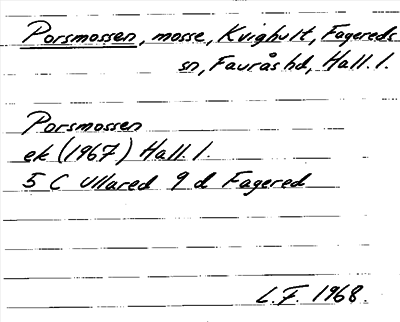 Porsmossen, mosse, Kvighult, Fagereds
sn, Faurås hd, Hall. l.
Porsmossen
ek (1967) Hall. l.
5 C Ullared 9 d Fagered
L.F. 1968.